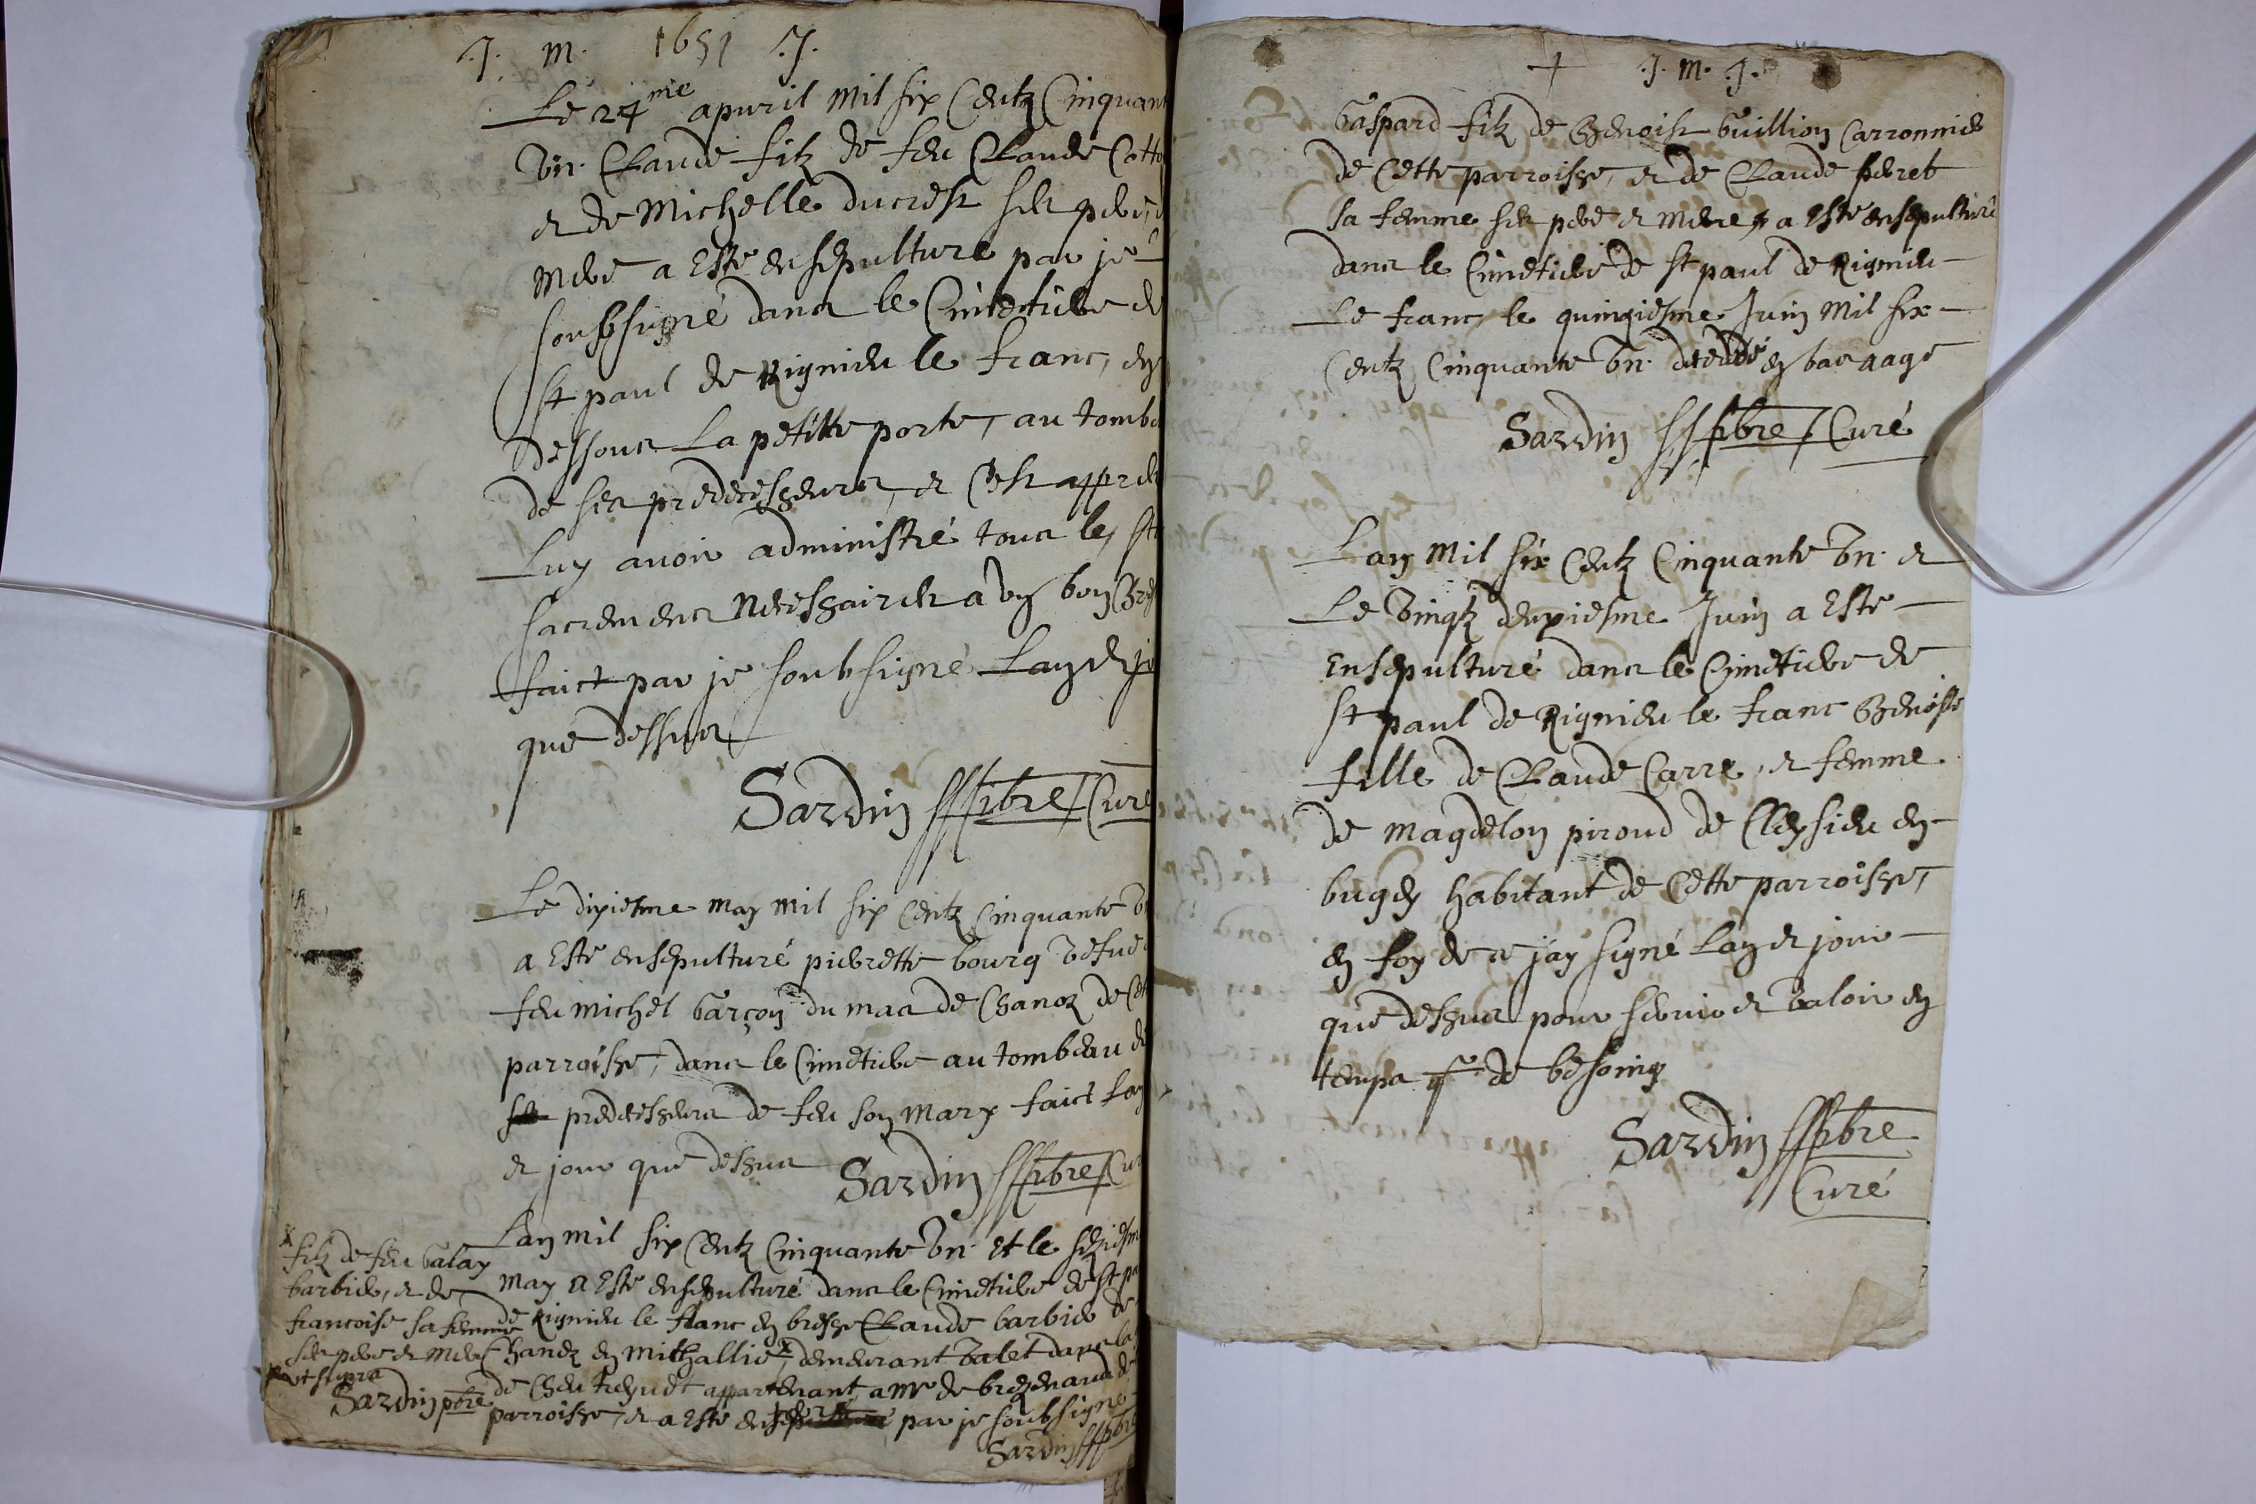 .J. m. 1651 .J.
Le 24me apvril mil six Centz Cinquant
Vn. Claude filz de feu Claude Cotto
et de Michelle ducrest ses pere,
mere a Esté ensepulture par je
soubsigné dans le Cimetiere de
st paul de Rignieu le franc, en
dessous La petitte porte, au tombe
de ses predecesseurs, et C'est appres
Luy avoir administré tous les sts
sacremens Necessaires a un bon
faict par je soubsigné Lan et jo
que dessus
Sardin pbre Curé
Le dixiesme may mil six Centz Cinquante V
a Esté ensepulturé pierrette bourg Vefue
feu michel Garçon du mas de Chanoz de Cet
parroisse, dans le Cimetiere au tombeau de
ses predecesseurs de feu son mary faict Lan
et jour que dessus Sardin pbre Cur
Lan mil six Centz Cinquante Vn. et le seziesm
may a Esté ensepulturé dans le Cimetiere de st pa
de Rignieu le franc en bresse Claude barbier de
Chanez en Michallie x demeurant Valet dans la
de appartenant a mr de de
parroisse, et a Esté enterré par je soubsigné
Sardin pbre
x filz de feu Galay
barbier, et de
francoise sa femme
ses pere et mere
ut supra
Sardin pbre
+ .J. m. .J.
Gaspard filz de Benoist Guillion Carronnier
de Cette parroisse, et de Claude peret
sa femme ses pere et mere, a Esté ensepulturé
dans le Cimetiere de st paul de Rignieu
Le franc, le quinziesme Juin mil six
Centz Cinquante Vn. decedé en bas aage
Sardin pbre Curé
Lan mil six Centz Cinquante Vn. et
Le Vingtz deuxiesme Juin a Esté
Ensepulturé dans le Cimetiere de
st paul de Rignieu le franc Benoiste
fille de Claude Carre, et femme
de magdelon piroud de Cleysieu en
bugey habitant de Cette parroisse,
en foy de ce jay signé Lan et jour
que dessus pour servir et Valoir en
temps de besoing
Sardin pbre
Curé